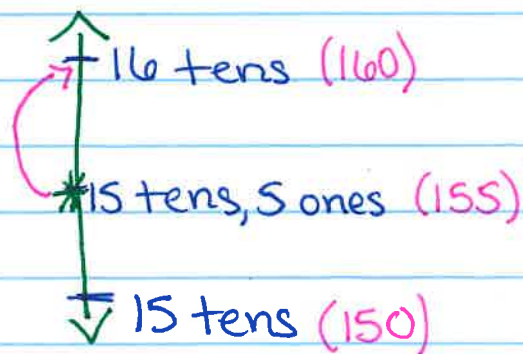 16 tens (160)
15 tens, 5 ones (155)
15 tens (150)